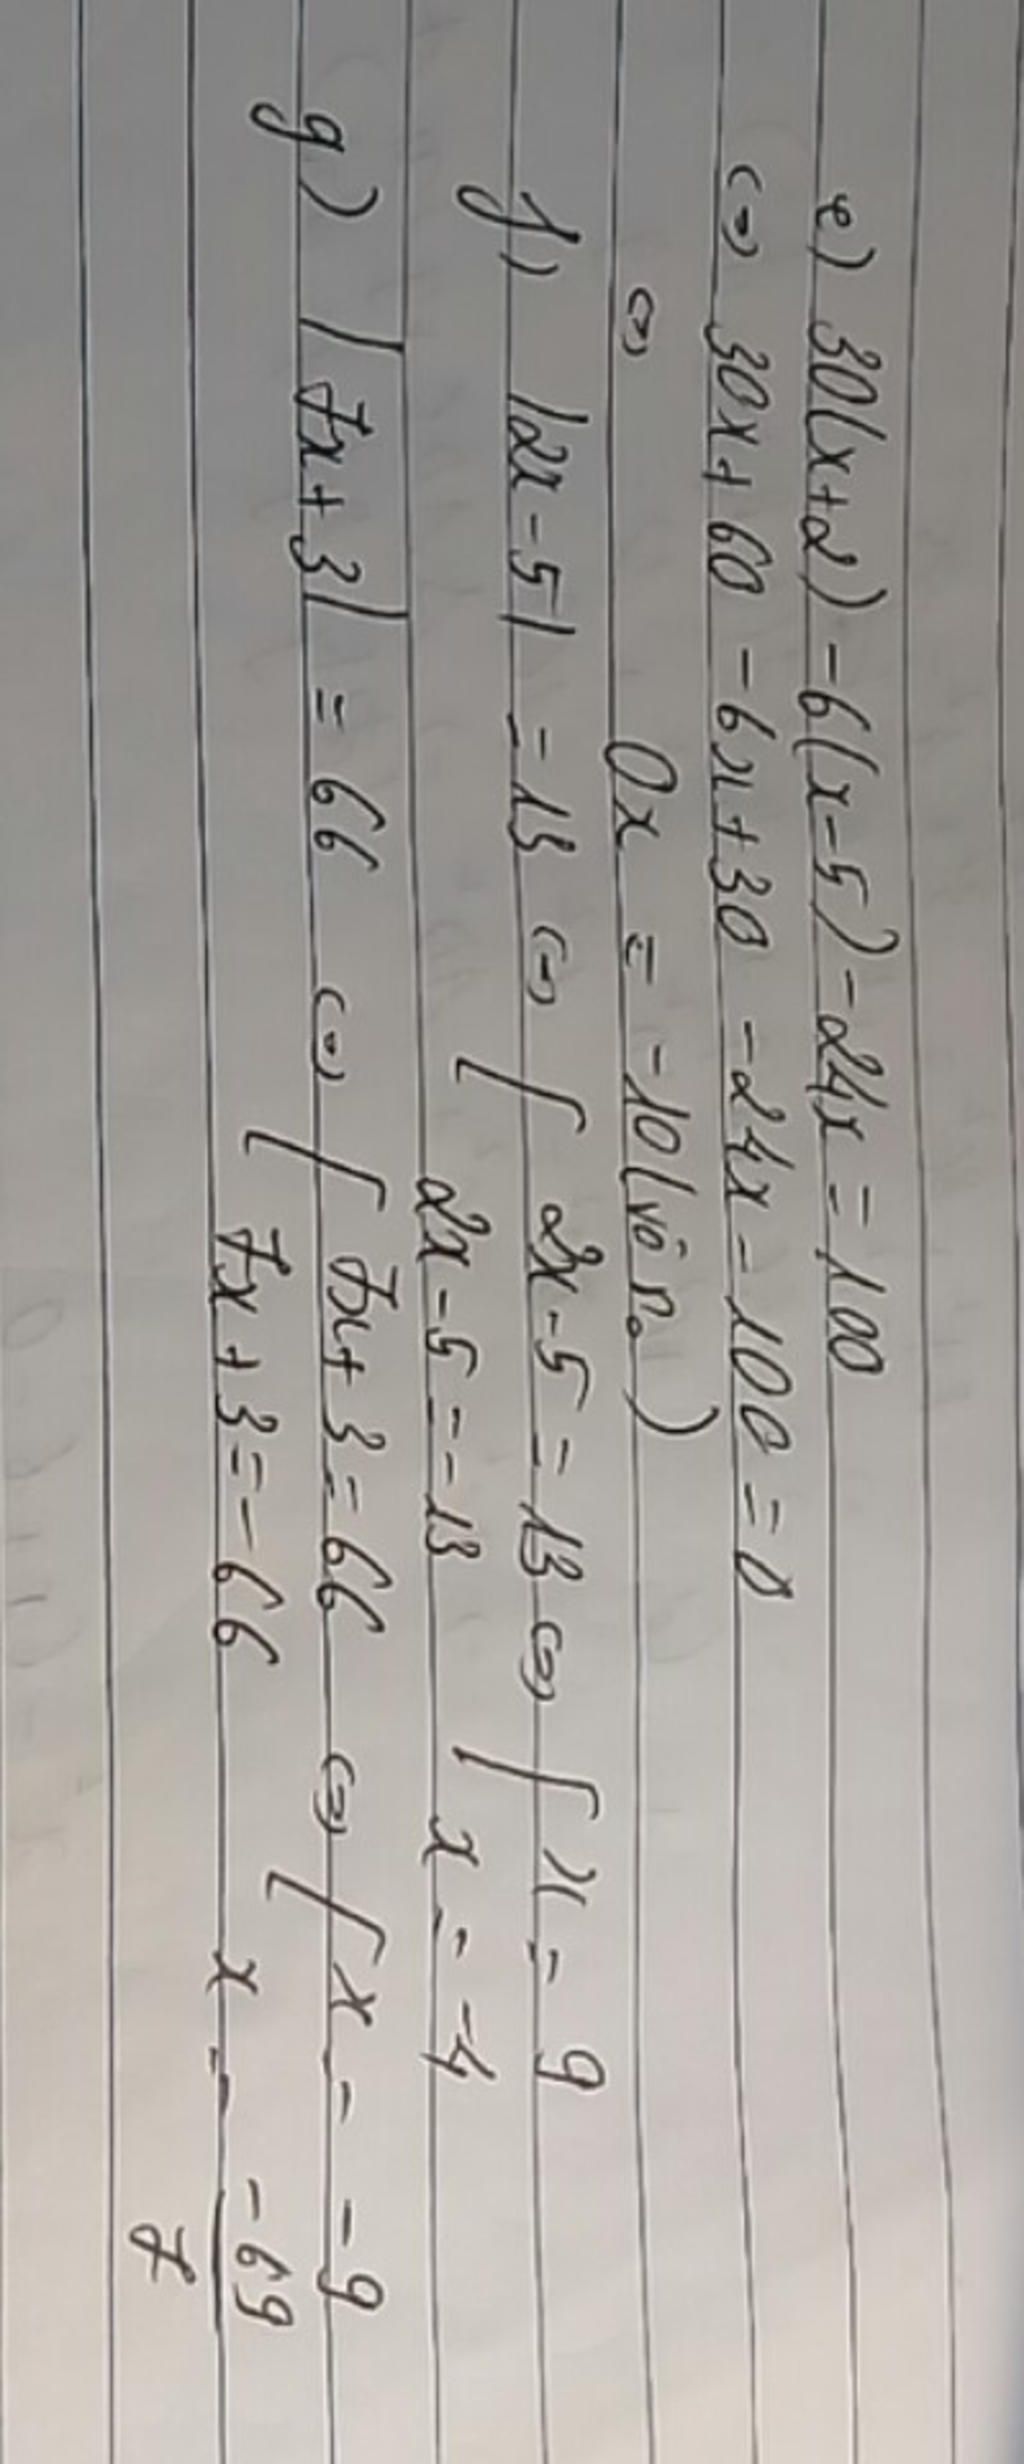 e) 30(x+2) - 6(x-5) - 24x = 100
<=> 30x + 60 - 6x + 30 - 24x - 100 = 0
<=> 0x = -10 (vô no)
f) |2x-5| = 13 <=> [ 2x-5 = 13 <=> [ x = 9
2x-5 = -13 x = -4
g) |7x+3| = 66 <=> [ 7x+3 = 66 <=> [ x = -9
7x+3 = -66 x = -69/7